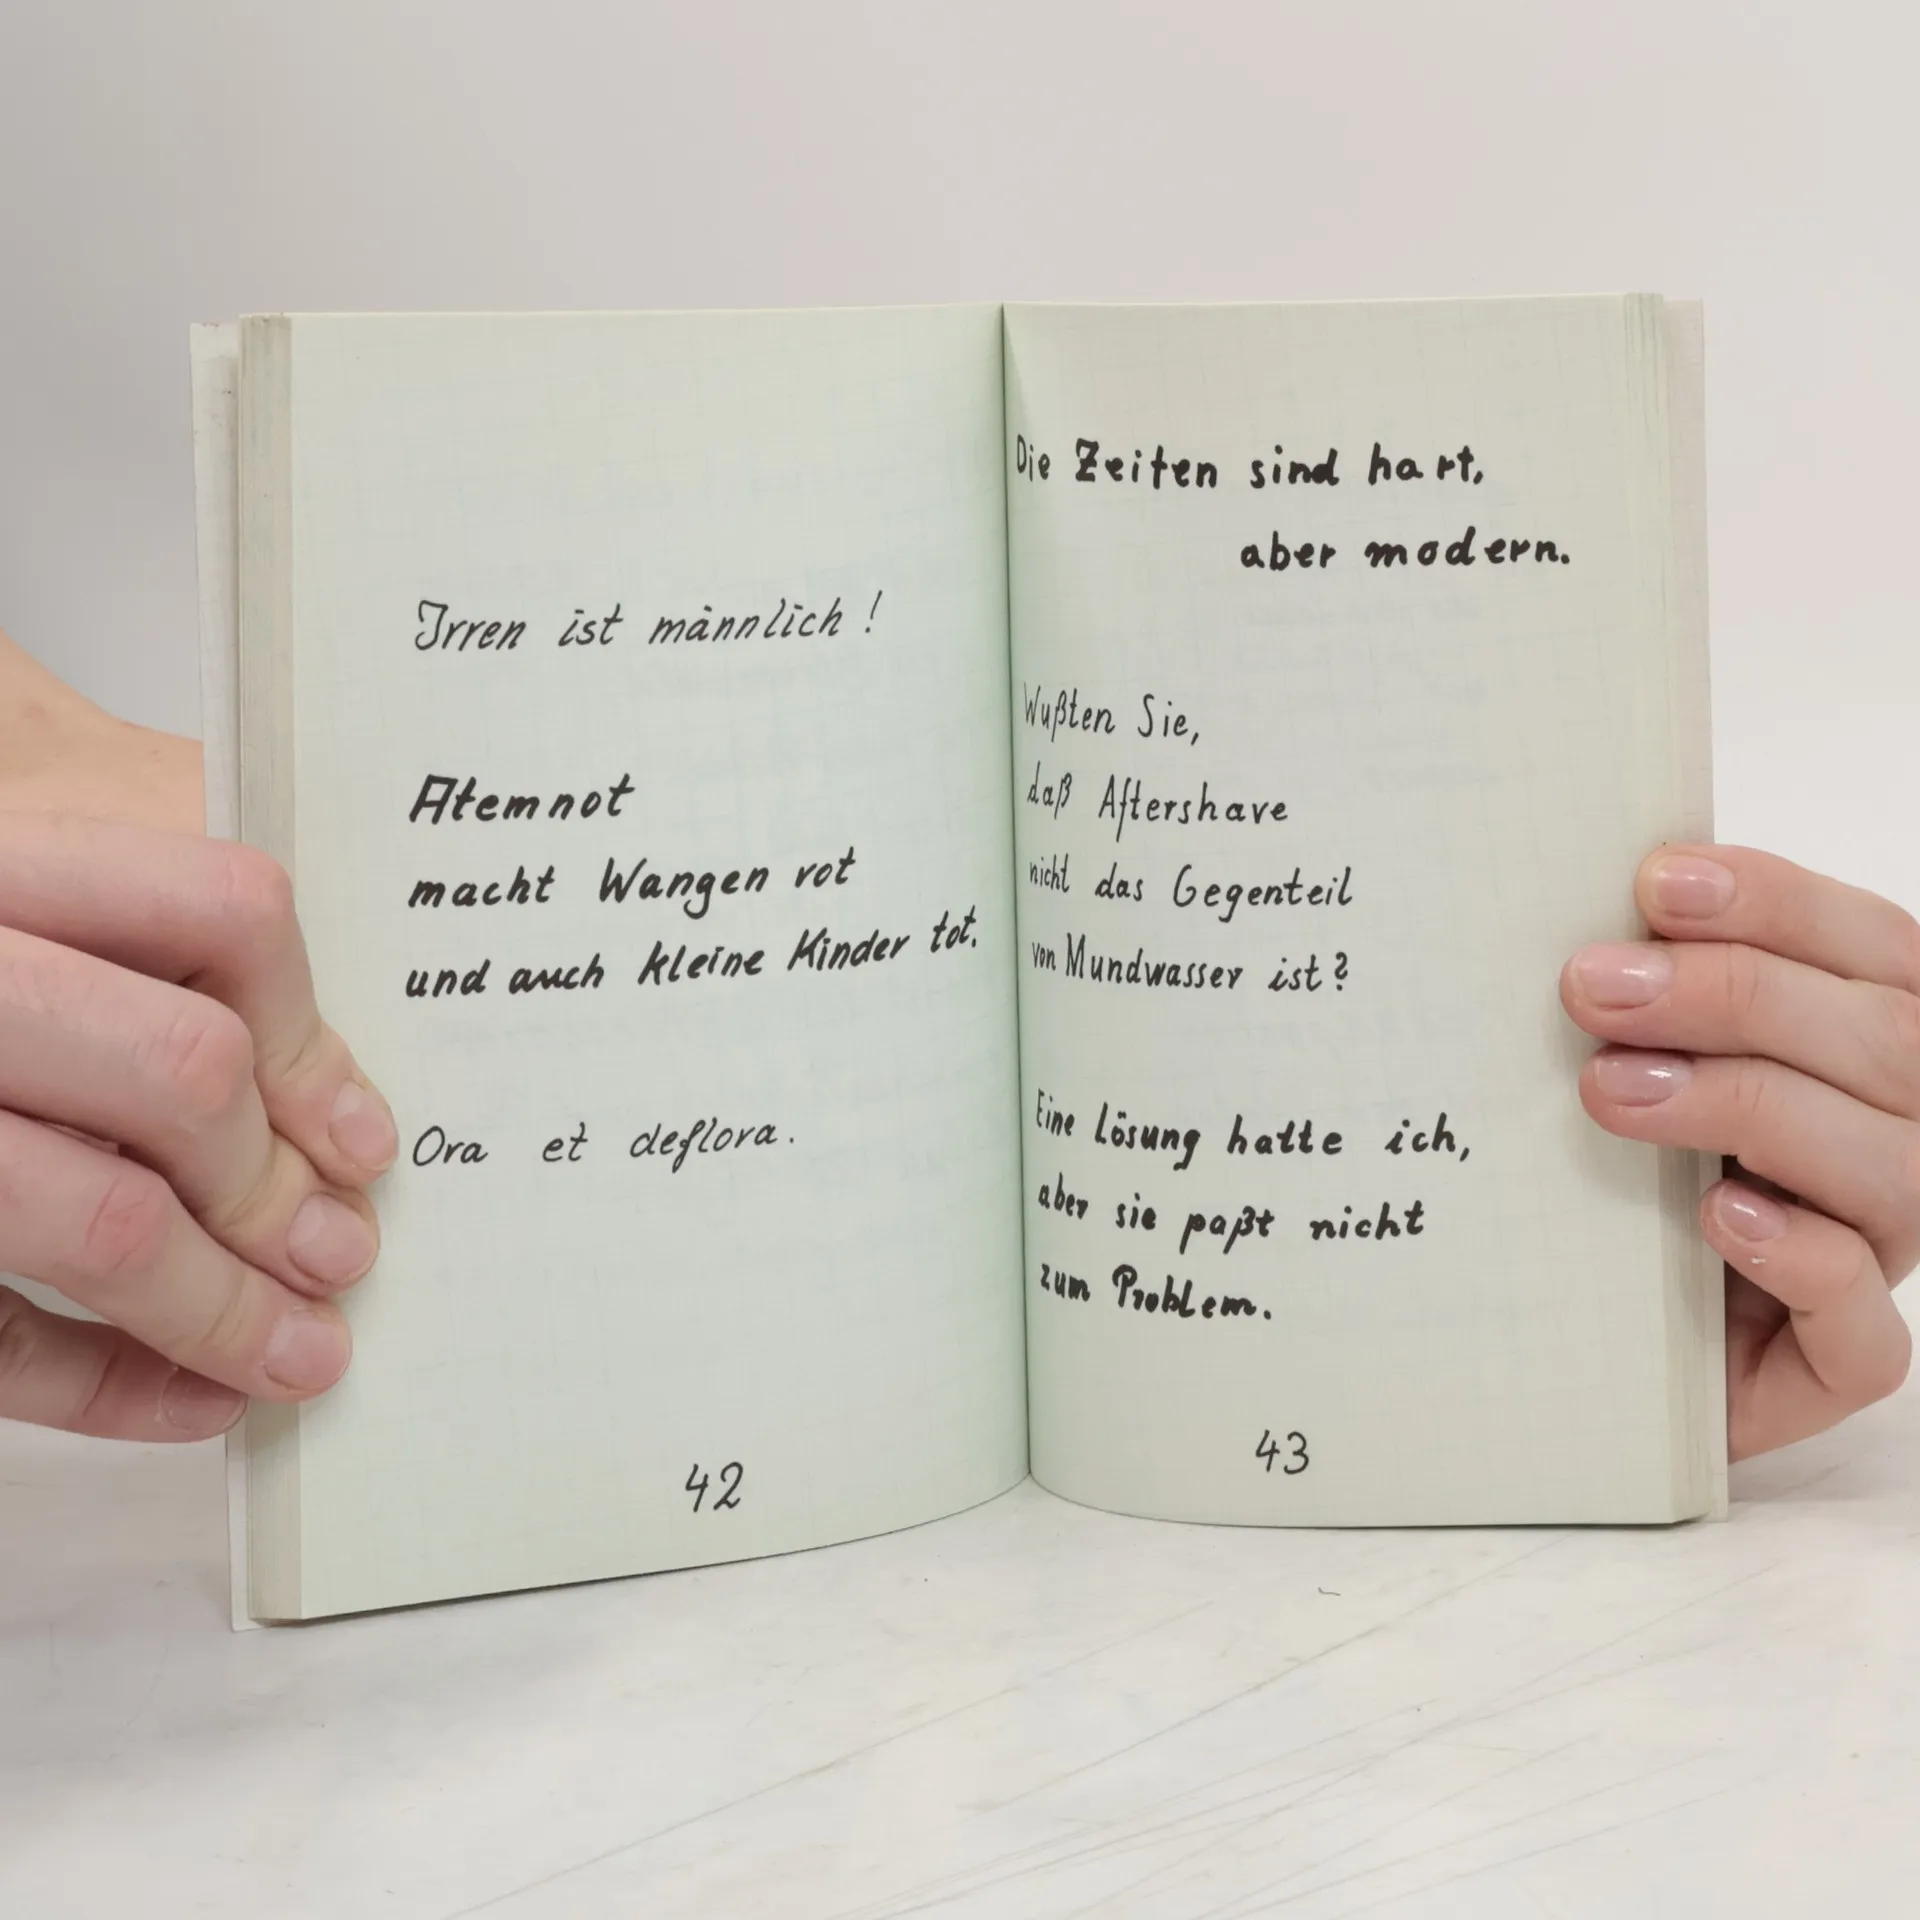 Irren ist männlich!
Atemnot
macht Wangen rot
und auch kleine Kinder tot.
Ora et deflora.
42
Die Zeiten sind hart,
aber modern.
Wußten Sie,
daß Aftershave
nicht das Gegenteil
von Mundwasser ist?
Eine Lösung hatte ich,
aber sie paßt nicht
zum Problem.
43